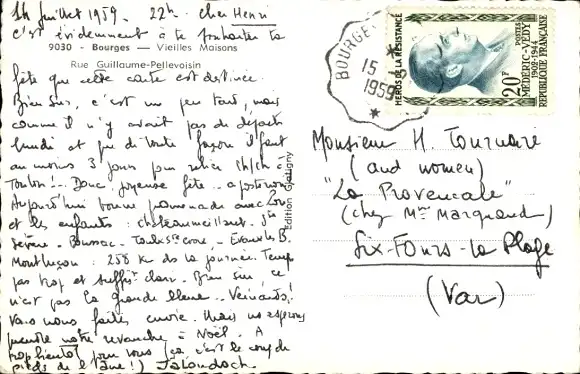 14 Juillet 1959. 22h. Cher Henri
c'est évidemment à te souhaiter ta
9030 - Bourges — Vieilles Maisons
Rue Guillaume-Pellevoisin
fête que cette carte est destinée.
Bien sûr, c'est un peu tard, mais
comme il n'y avait pas de départs
lundi et que de toute façon il faut
au moins 3 jours pour relier
Toulon!... Donc, joyeuse fête.. a posteriori
Aujourd'hui bonne promenade avec
et les enfants: châteaumeillant. Ste
Sévère. Boussac. Toulx Ste Croix. Evaux les B.
Montluçon: 258 km ds la journée. Temps
pas trop et suffist clair. Bien sûr, ce
n'est pas la Grande bleue.. Veinards!
Vous nous faites envie. Mais ns espérons
prendre notre revanche à Noël. A
trop bientôt pour vous (ça c'est le coup de
pieds de l'âne!)
Edition G. Magny
BOURGES
15
1959
HEROS DE LA RESISTANCE
20F
MÉDÉRIC-VÉDY
1902-1944
POSTES
REPUBLIQUE FRANÇAISE
Monsieur H. Tournaire
(and women)
"La Provençale"
(chez Mme Marquand)
Six-Fours-la Plage
(Var)